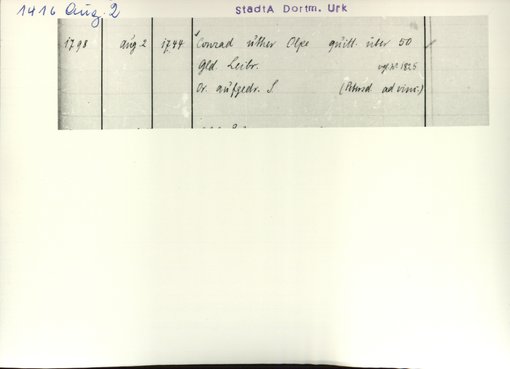 1416 Aug. 2
StadtA Dortm. Urk
1798 aug 2 1744 Conrad uther Olpe quitt. über 50
Gld. Leibr. vgl. N° 1825
Or. aufgedr. S. ad vinc.)